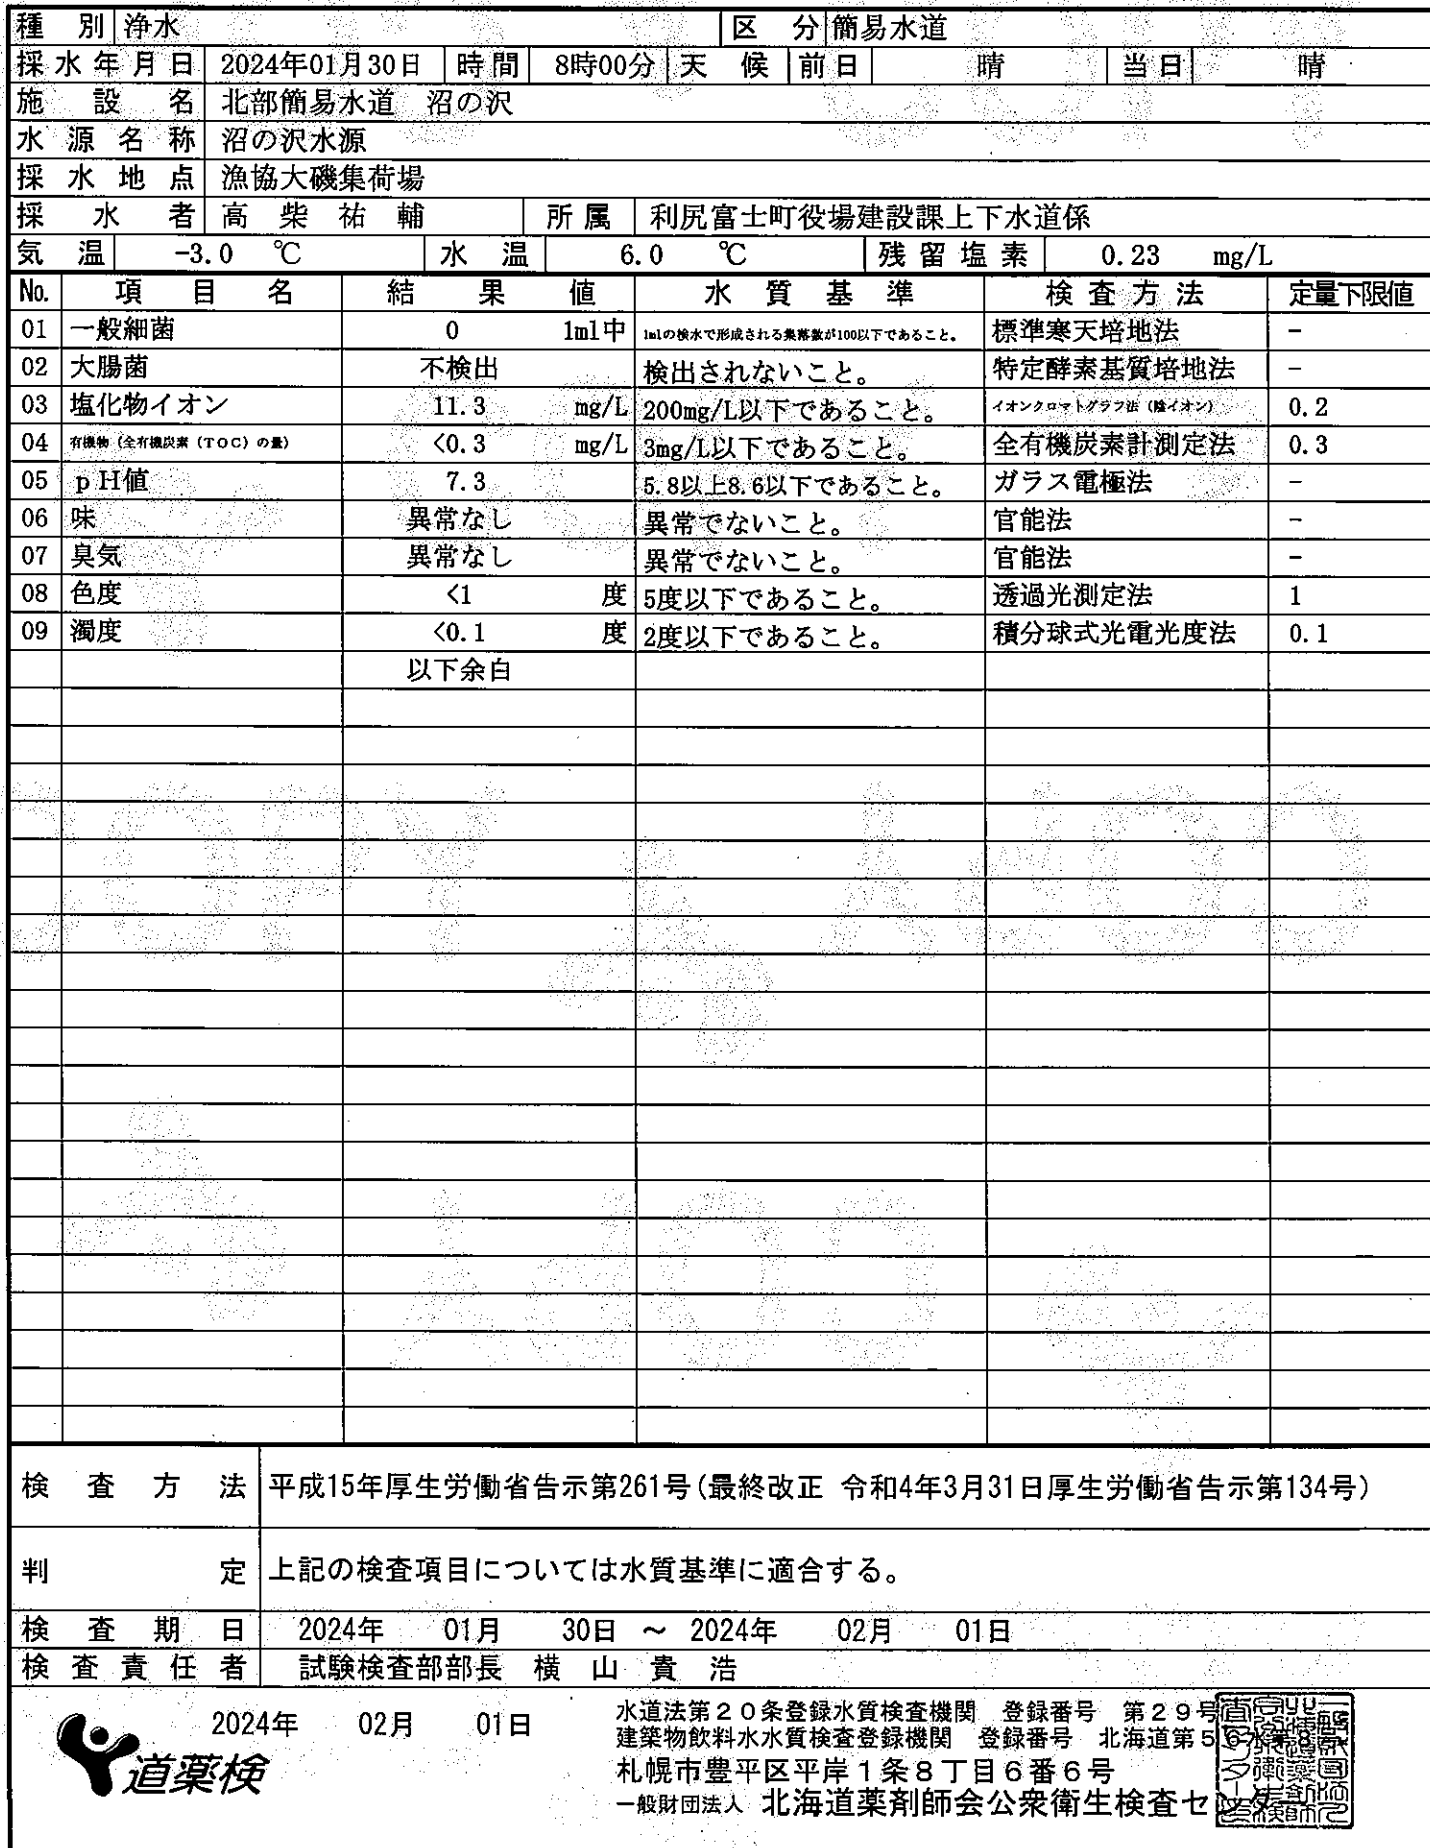 種別 浄水 区分 簡易水道
採水年月日 2024年01月30日 時間 8時00分 天候 前日 晴 当日 晴
施設名 北部簡易水道 沼の沢
水源名称 沼の沢水源
採水地点 漁協大磯集荷場
採水者 高柴祐輔 所属 利尻富士町役場建設課上下水道係
気温 -3.0 ℃ 水温 6.0 ℃ 残留塩素 0.23 mg/L
No. 項目名 結果値 水質基準 検査方法 定量下限値
01 一般細菌 0 1ml中 1mlの検水で形成される集落数が100以下であること。 標準寒天培地法 -
02 大腸菌 不検出 検出されないこと。 特定酵素基質培地法 -
03 塩化物イオン 11.3 mg/L 200mg/L以下であること。 イオンクロマトグラフ法（陰イオン） 0.2
04 有機物（全有機炭素（TOC）の量） <0.3 mg/L 3mg/L以下であること。 全有機炭素計測定法 0.3
05 pH値 7.3 5.8以上8.6以下であること。 ガラス電極法 -
06 味 異常なし 異常でないこと。 官能法 -
07 臭気 異常なし 異常でないこと。 官能法 -
08 色度 <1 度 5度以下であること。 透過光測定法 1
09 濁度 <0.1 度 2度以下であること。 積分球式光電光度法 0.1
以下余白
検査方法 平成15年厚生労働省告示第261号(最終改正 令和4年3月31日厚生労働省告示第134号)
判定 上記の検査項目については水質基準に適合する。
検査期日 2024年 01月 30日 ～ 2024年 02月 01日
検査責任者 試験検査部部長 横山貴浩
2024年 02月 01日
道薬検
水道法第20条登録水質検査機関 登録番号 第29号
建築物飲料水水質検査登録機関 登録番号 北海道第56水第8号
札幌市豊平区平岸1条8丁目6番6号
一般財団法人 北海道薬剤師会公衆衛生検査センター